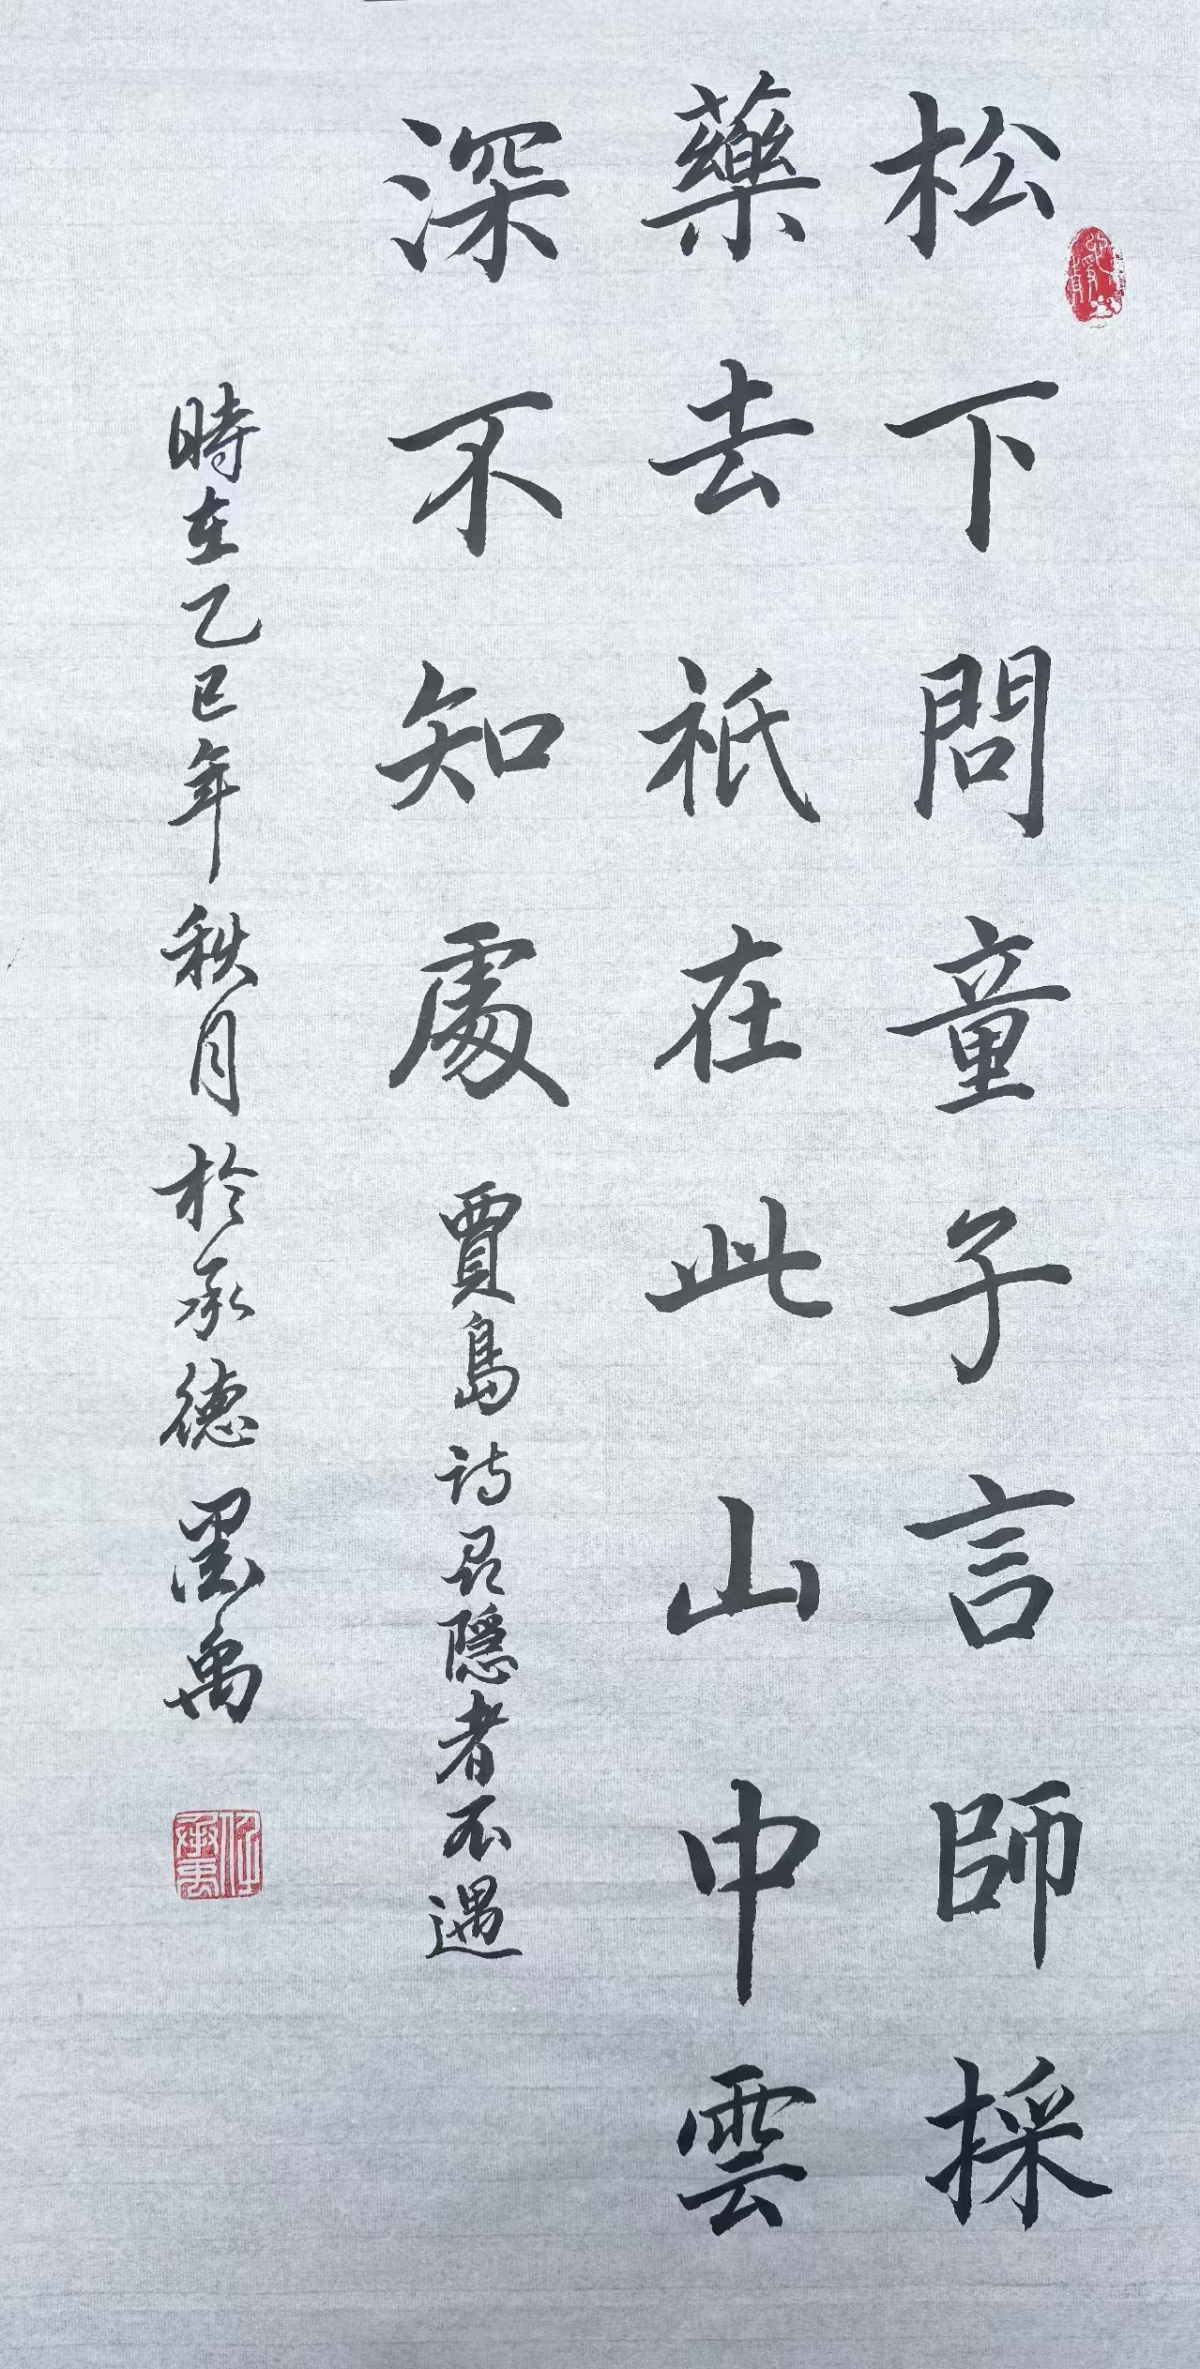 松下問童子言師採
藥去祇在此山中雲
深不知處 賈島詩尋隱者不遇
時在乙巳年秋月於承德 墨禹